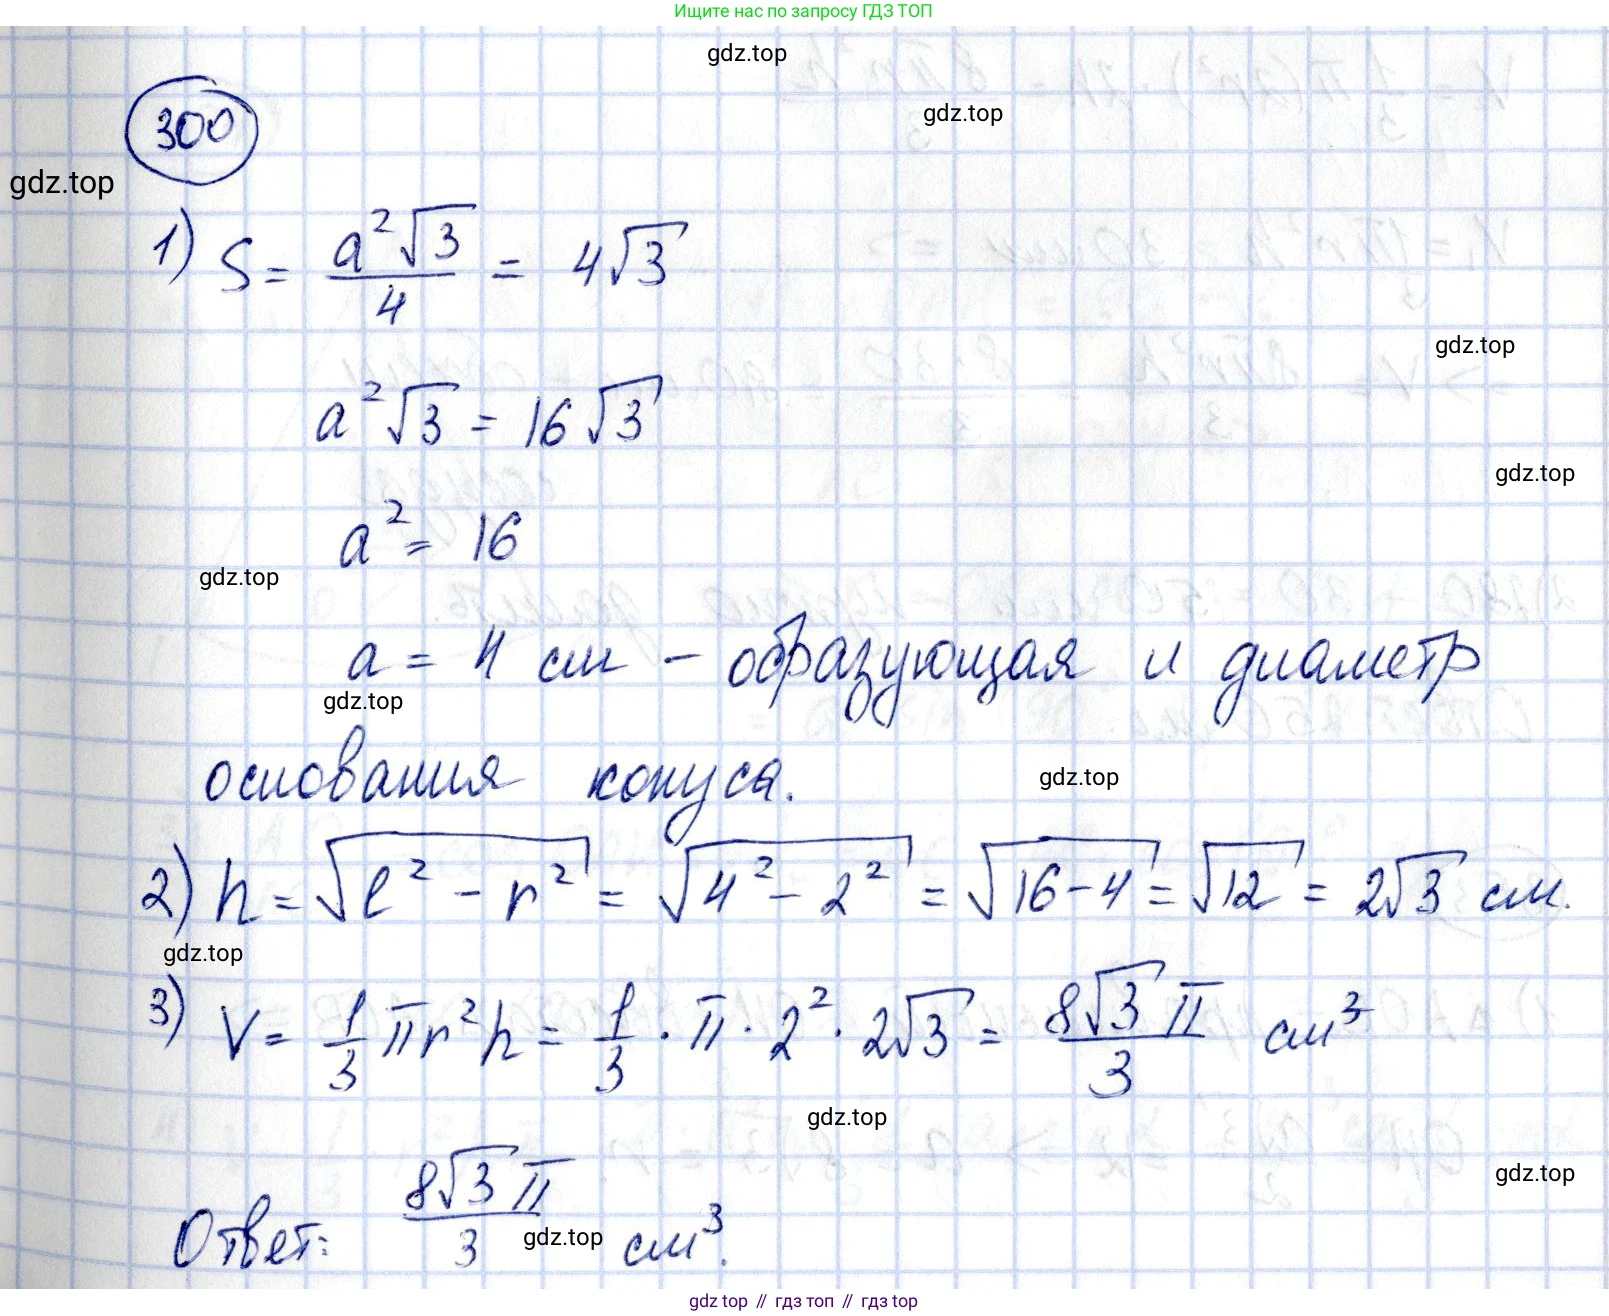 Ищите нас по запросу ГДЗ ТОП
gdz.top
gdz.top
300
gdz.top
1) S = a²√3/4 = 4√3
gdz.top
a²√3 = 16√3
gdz.top
a² = 16
gdz.top
a = 4 см – образующая и диаметр
gdz.top
основания конуса.
gdz.top
2) h = √(l² - r²) = √(4² - 2²) = √(16-4) = √12 = 2√3 см.
gdz.top
3) V = 1/3 πr²h = 1/3 · π · 2² · 2√3 = 8√3π/3 см³
gdz.top
gdz.top
Ответ: 8√3π/3 см³.
gdz.top
gdz.top // гдз топ // gdz.top